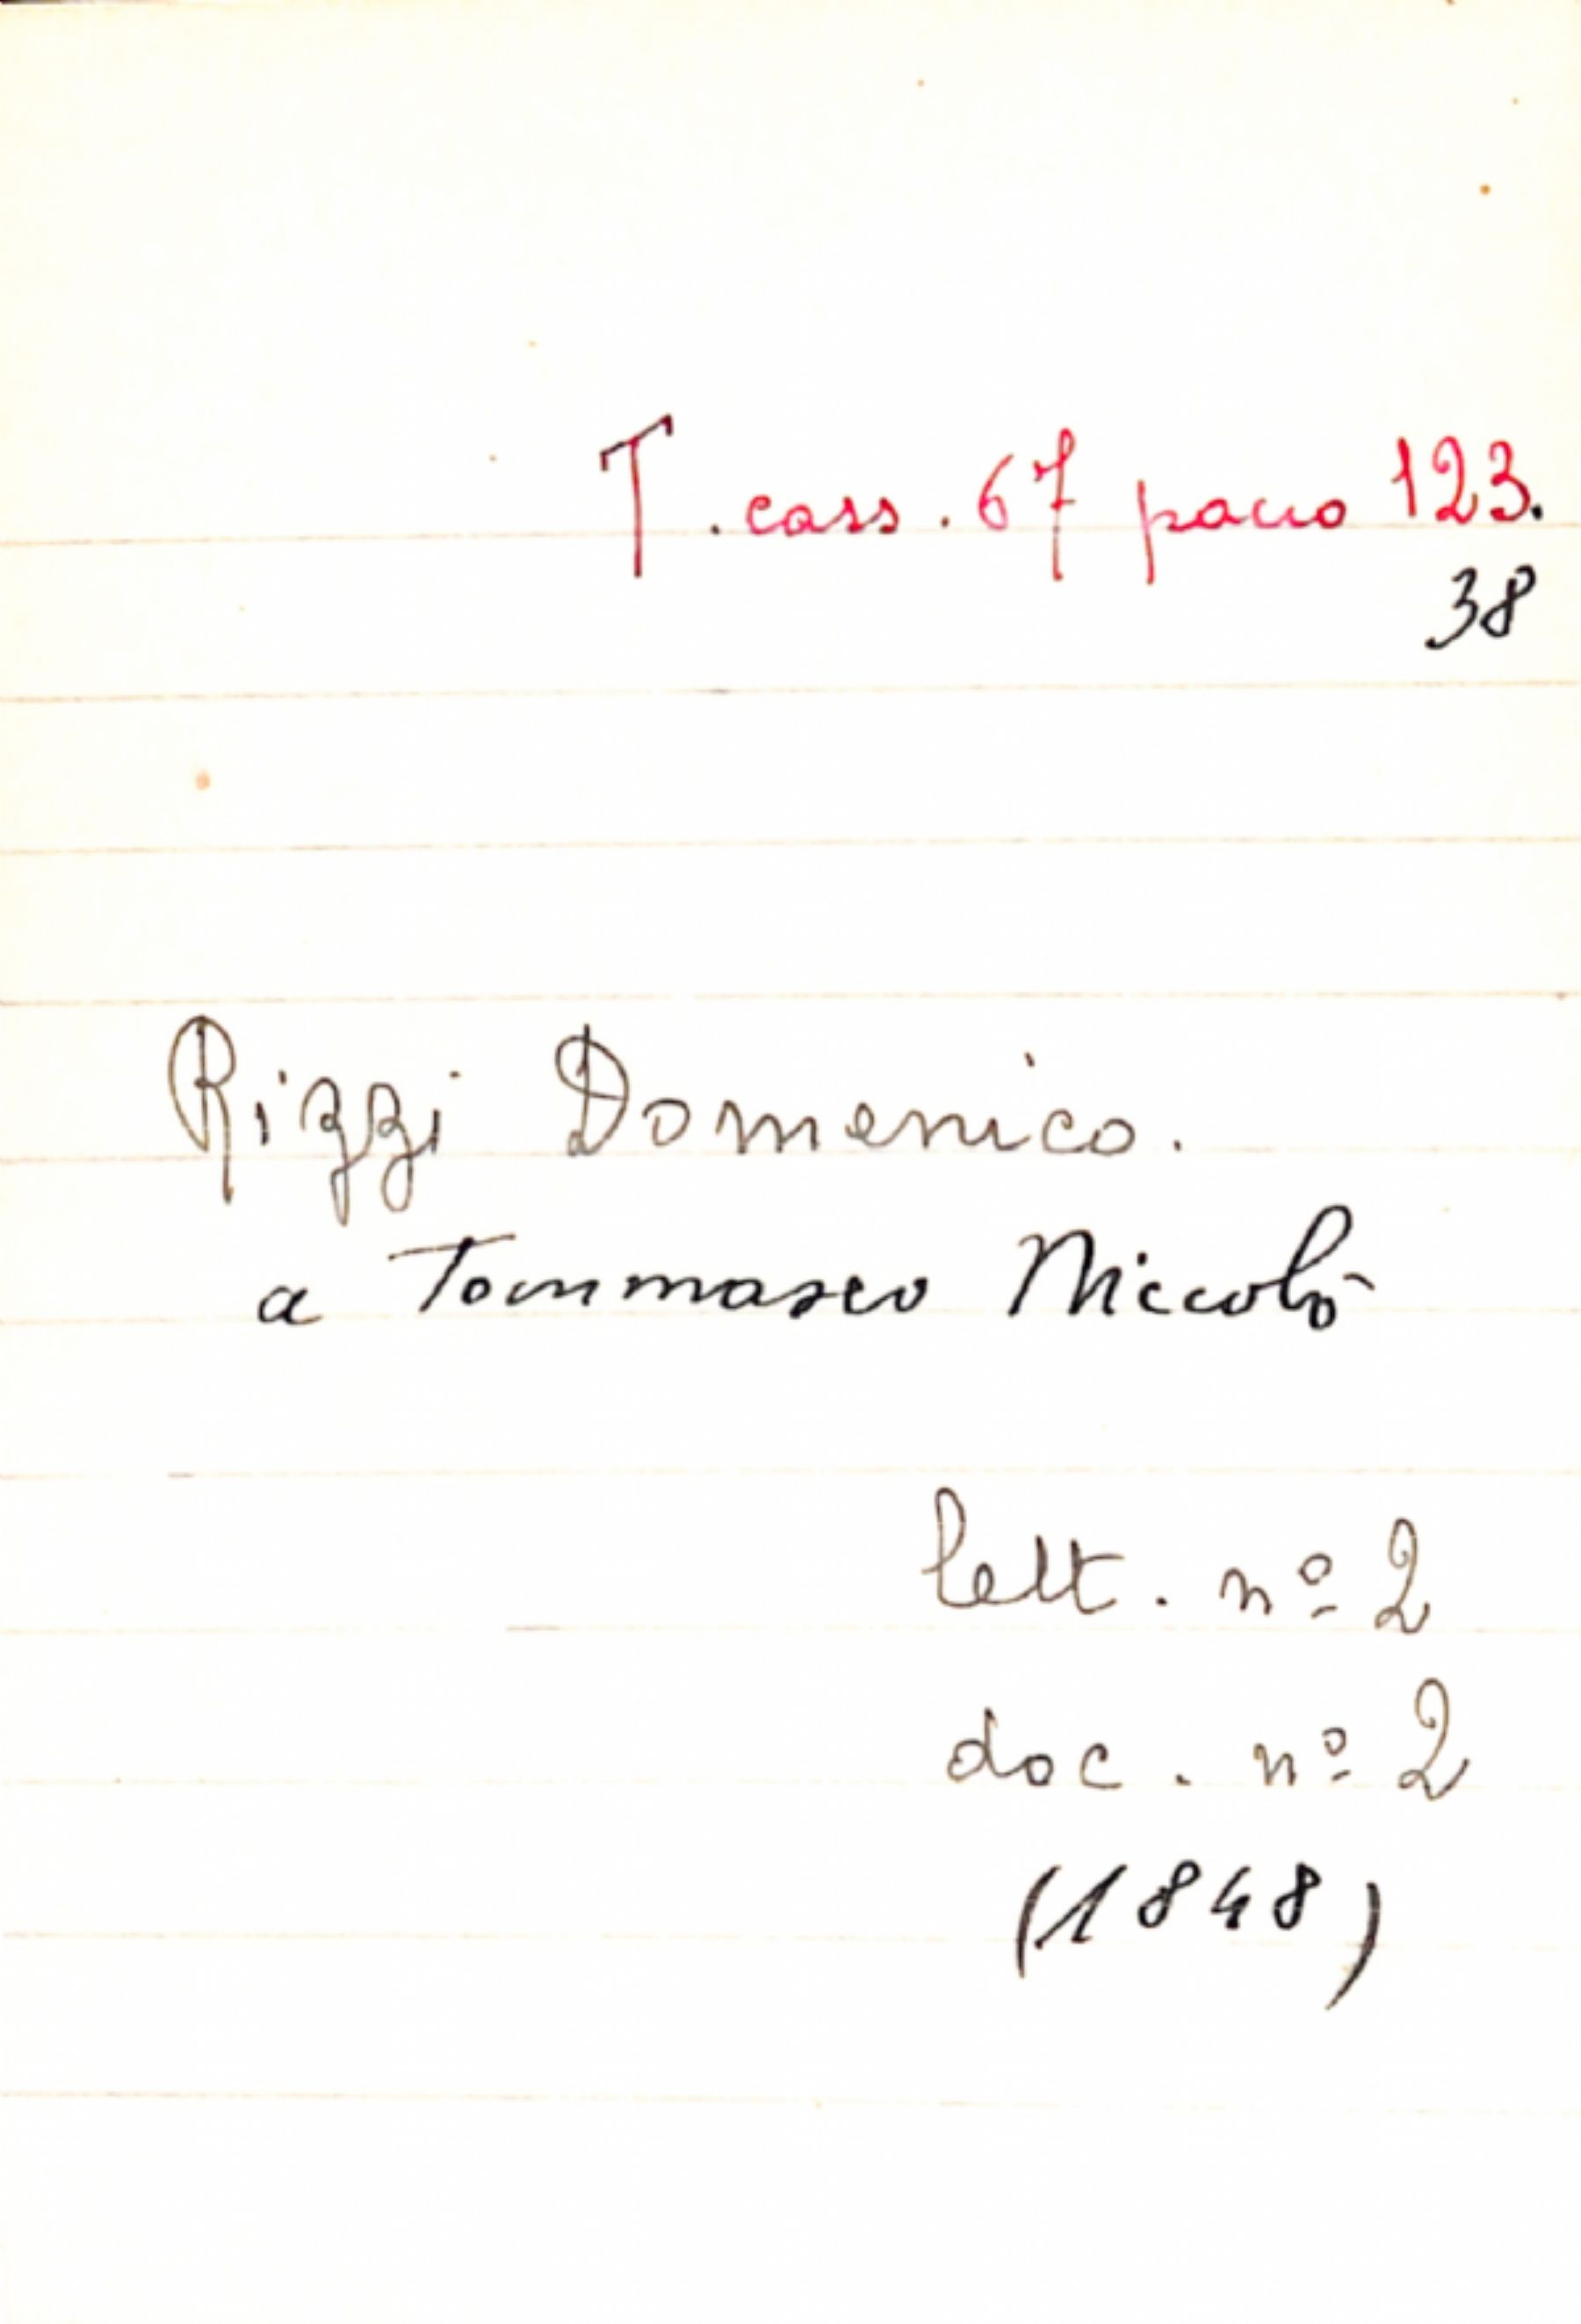 T. cass. 67 pacco 123.
38
Rizzi Domenico.
a Tommaseo Niccolò
lett. nº 2
doc. nº 2
(1848)